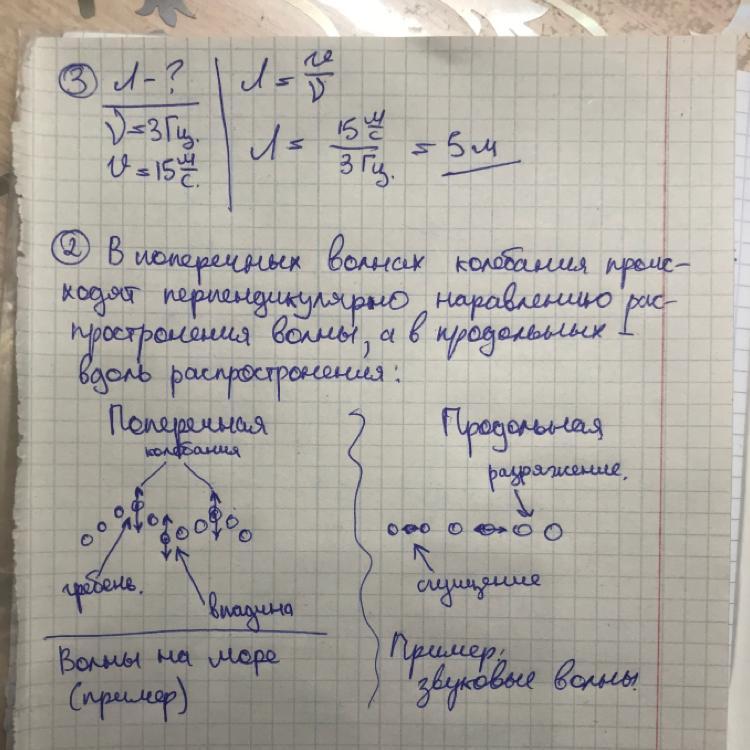 ③ λ - ?
ν = 3 Гц.
υ = 15 м/с.
λ = υ/ν
λ = 15 м/с / 3 Гц. = 5 м
② В поперечных волнах колебания проис-
ходят перпендикулярно наравлению рас-
простронения волны, а в продольных –
вдоль распространения:
Поперечная
колебания
гребень.
впадина
Волны на море
(пример)
Продольная
разряжение.
сгущение
Пример:
звуковые волны.